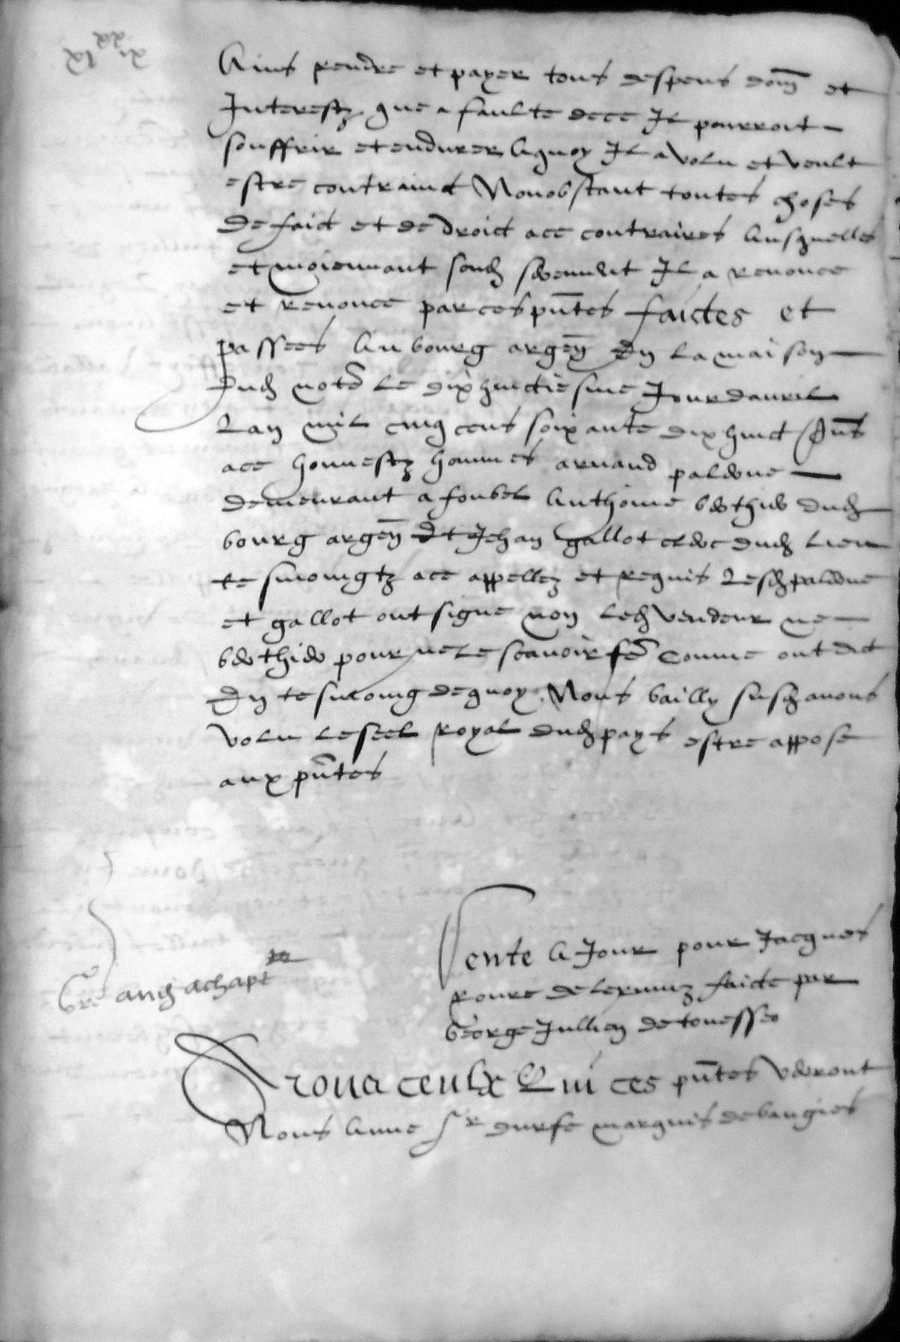 Ains rendre et payer tous despens dom et
Interestz que a faulte de ce Il pourroit
souffrir et endurer A quoy Il a volu et veult
estre contrainct Nonobstant toutes choses
De faict et de droict a ce contraires Ausquelles
et moiennant sond serement Il a renonce
et renonce par ces pntes faictes et
passees Au bourg argen En la maison
Dud notre Le dixhuictiesme Jour davril
Lan mil cinq cens soixante dix huict Pns
a ce honnestz hommes arnaud paleue
demeurant a Anthoine berthier dud
bourg argen Et Jehan gallot clerc dud Lieu
tesmoingtz a ce appellez et requis Lesd paleue
et gallot ont signe non Led vendeur ne
berthier pour ne le scavoir fe Comme ont dit
En tesmoing de quoy Nous bailly susd avons
volu le seel royal dud pays estre appose
aux pntes
Vente A Jour pour Jacques
faicte par
George Jullien
achapt
A tous ceulx Qui ces pntes verront
Nous Anne Sr durfe marquis de baugies